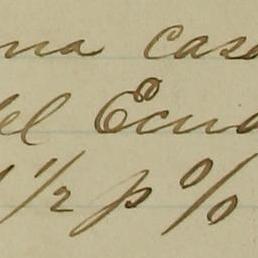 na casa
del Ecua
1 1/2 p %